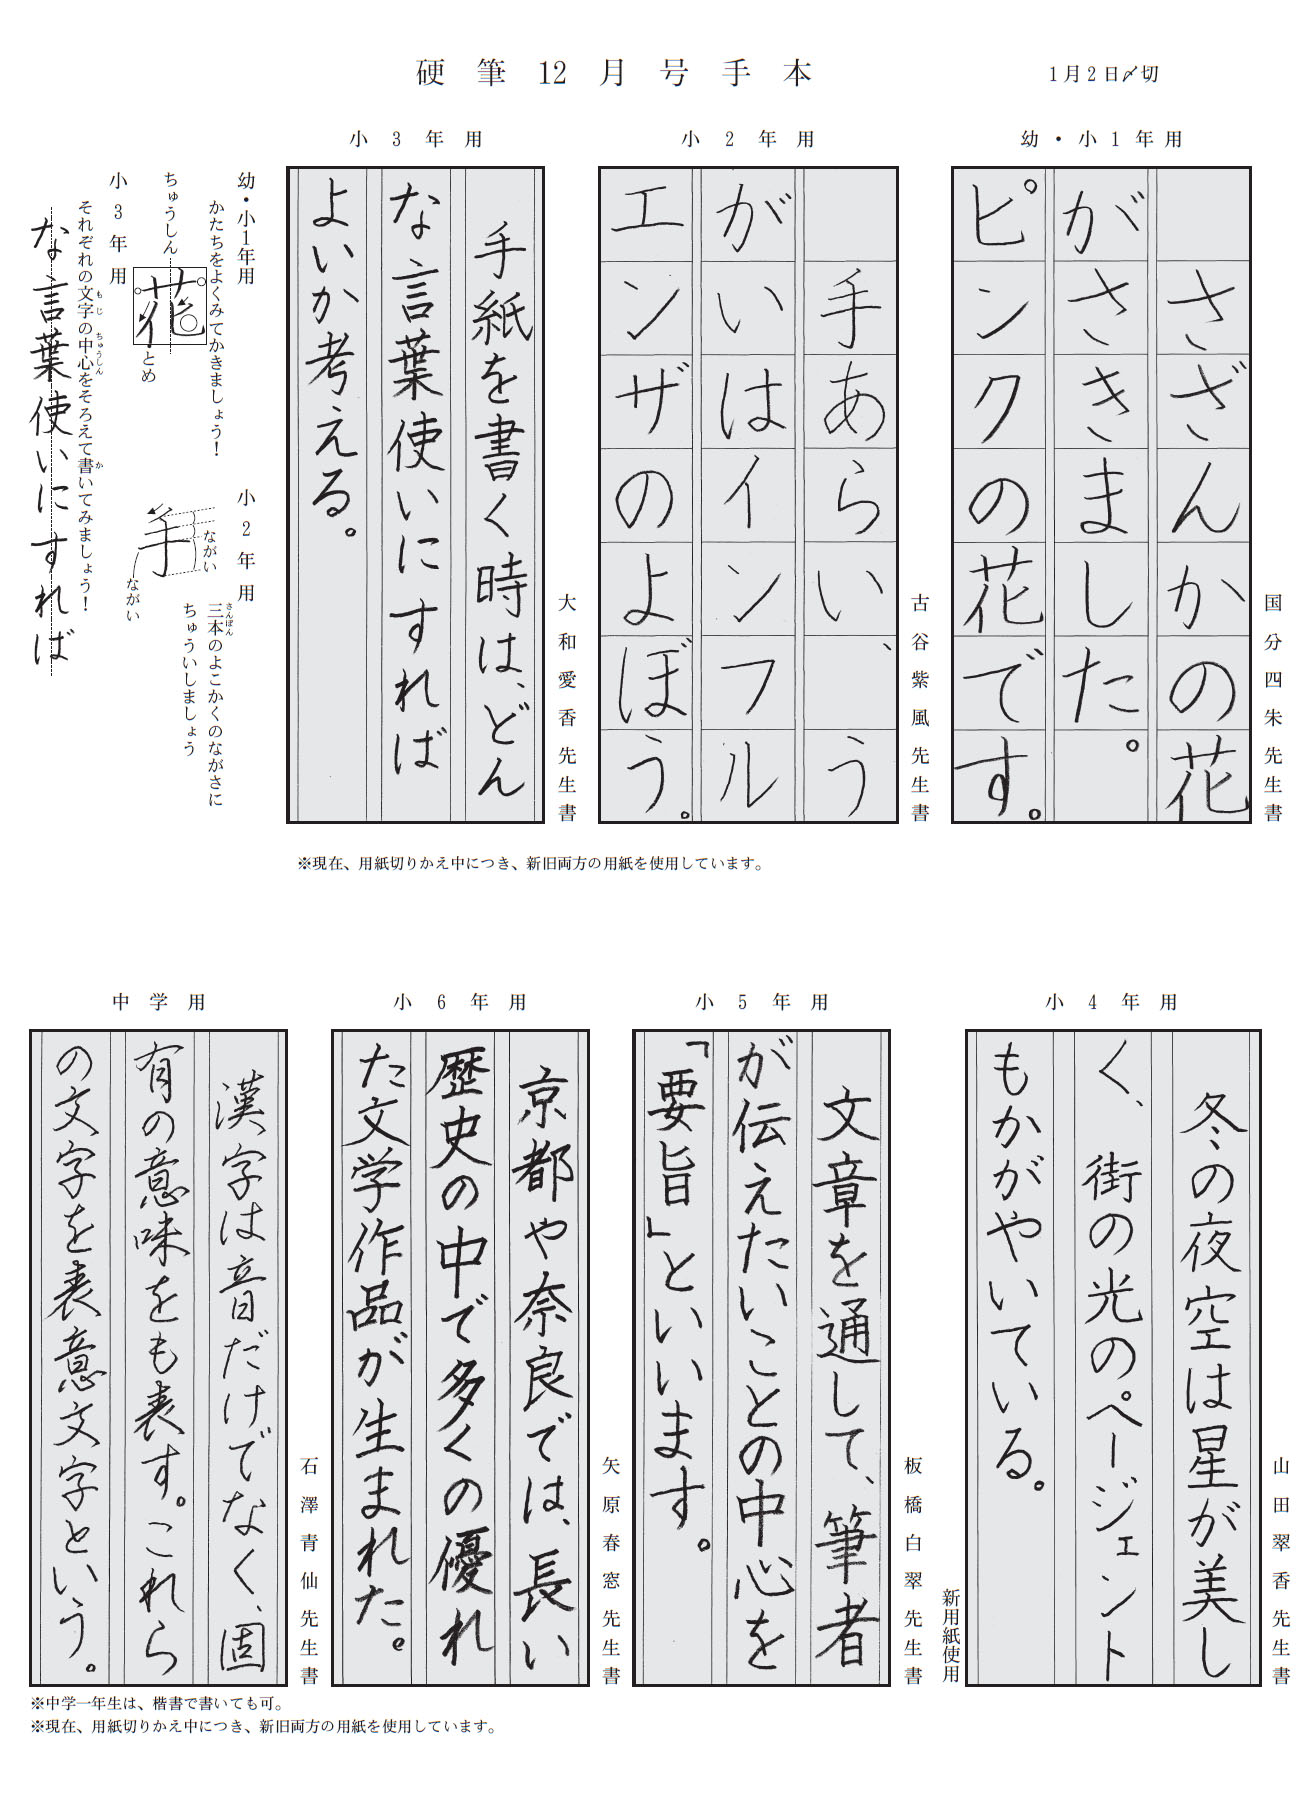 硬筆12月号手本
1月2日〆切
幼・小1年用
さざんかの花
がさきました。
ピンクの花です。
国分四朱先生書
小2年用
手あらい、う
がいはインフル
エンザのよぼう。
古谷紫風先生書
小3年用
手紙を書く時は、どん
な言葉使いにすれば
よいか考える。
大和愛香先生書
幼・小1年用
かたちをよくみてかきましょう！
ちゅうしん
花
とめ
小2年用
三本のよこかくのながさに
さんぼん
ちゅういしましょう
手
ながい
ながい
小3年用
それぞれの文字の中心をそろえて書いてみましょう！
もじ
ちゅうしん
か
な言葉使いにすれば
※現在、用紙切りかえ中につき、新旧両方の用紙を使用しています。
小4年用
冬の夜空は星が美し
く、街の光のページェント
もかがやいている。
山田翠香先生書
新用紙使用
小5年用
文章を通して、筆者
が伝えたいことの中心を
「要旨」といいます。
板橋白翠先生書
小6年用
京都や奈良では、長い
歴史の中で多くの優れ
た文学作品が生まれた。
矢原春窓先生書
中学用
漢字は音だけでなく、固
有の意味をも表す。これら
の文字を表意文字という。
石澤青仙先生書
※中学一年生は、楷書で書いても可。
※現在、用紙切りかえ中につき、新旧両方の用紙を使用しています。